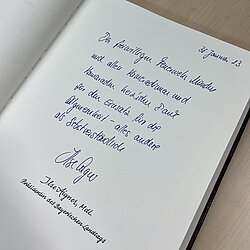 31. Januar 23
Der Freiwilligen Feuerwehr
und allen Kameradinnen und
Kameraden herzlichen Dank
für den Einsatz für die
Allgemeinheit – alles andere
als Selbstverständlich
Ilse Aigner
Ilse Aigner, MdL
Präsidentin des Bayerischen Landtags